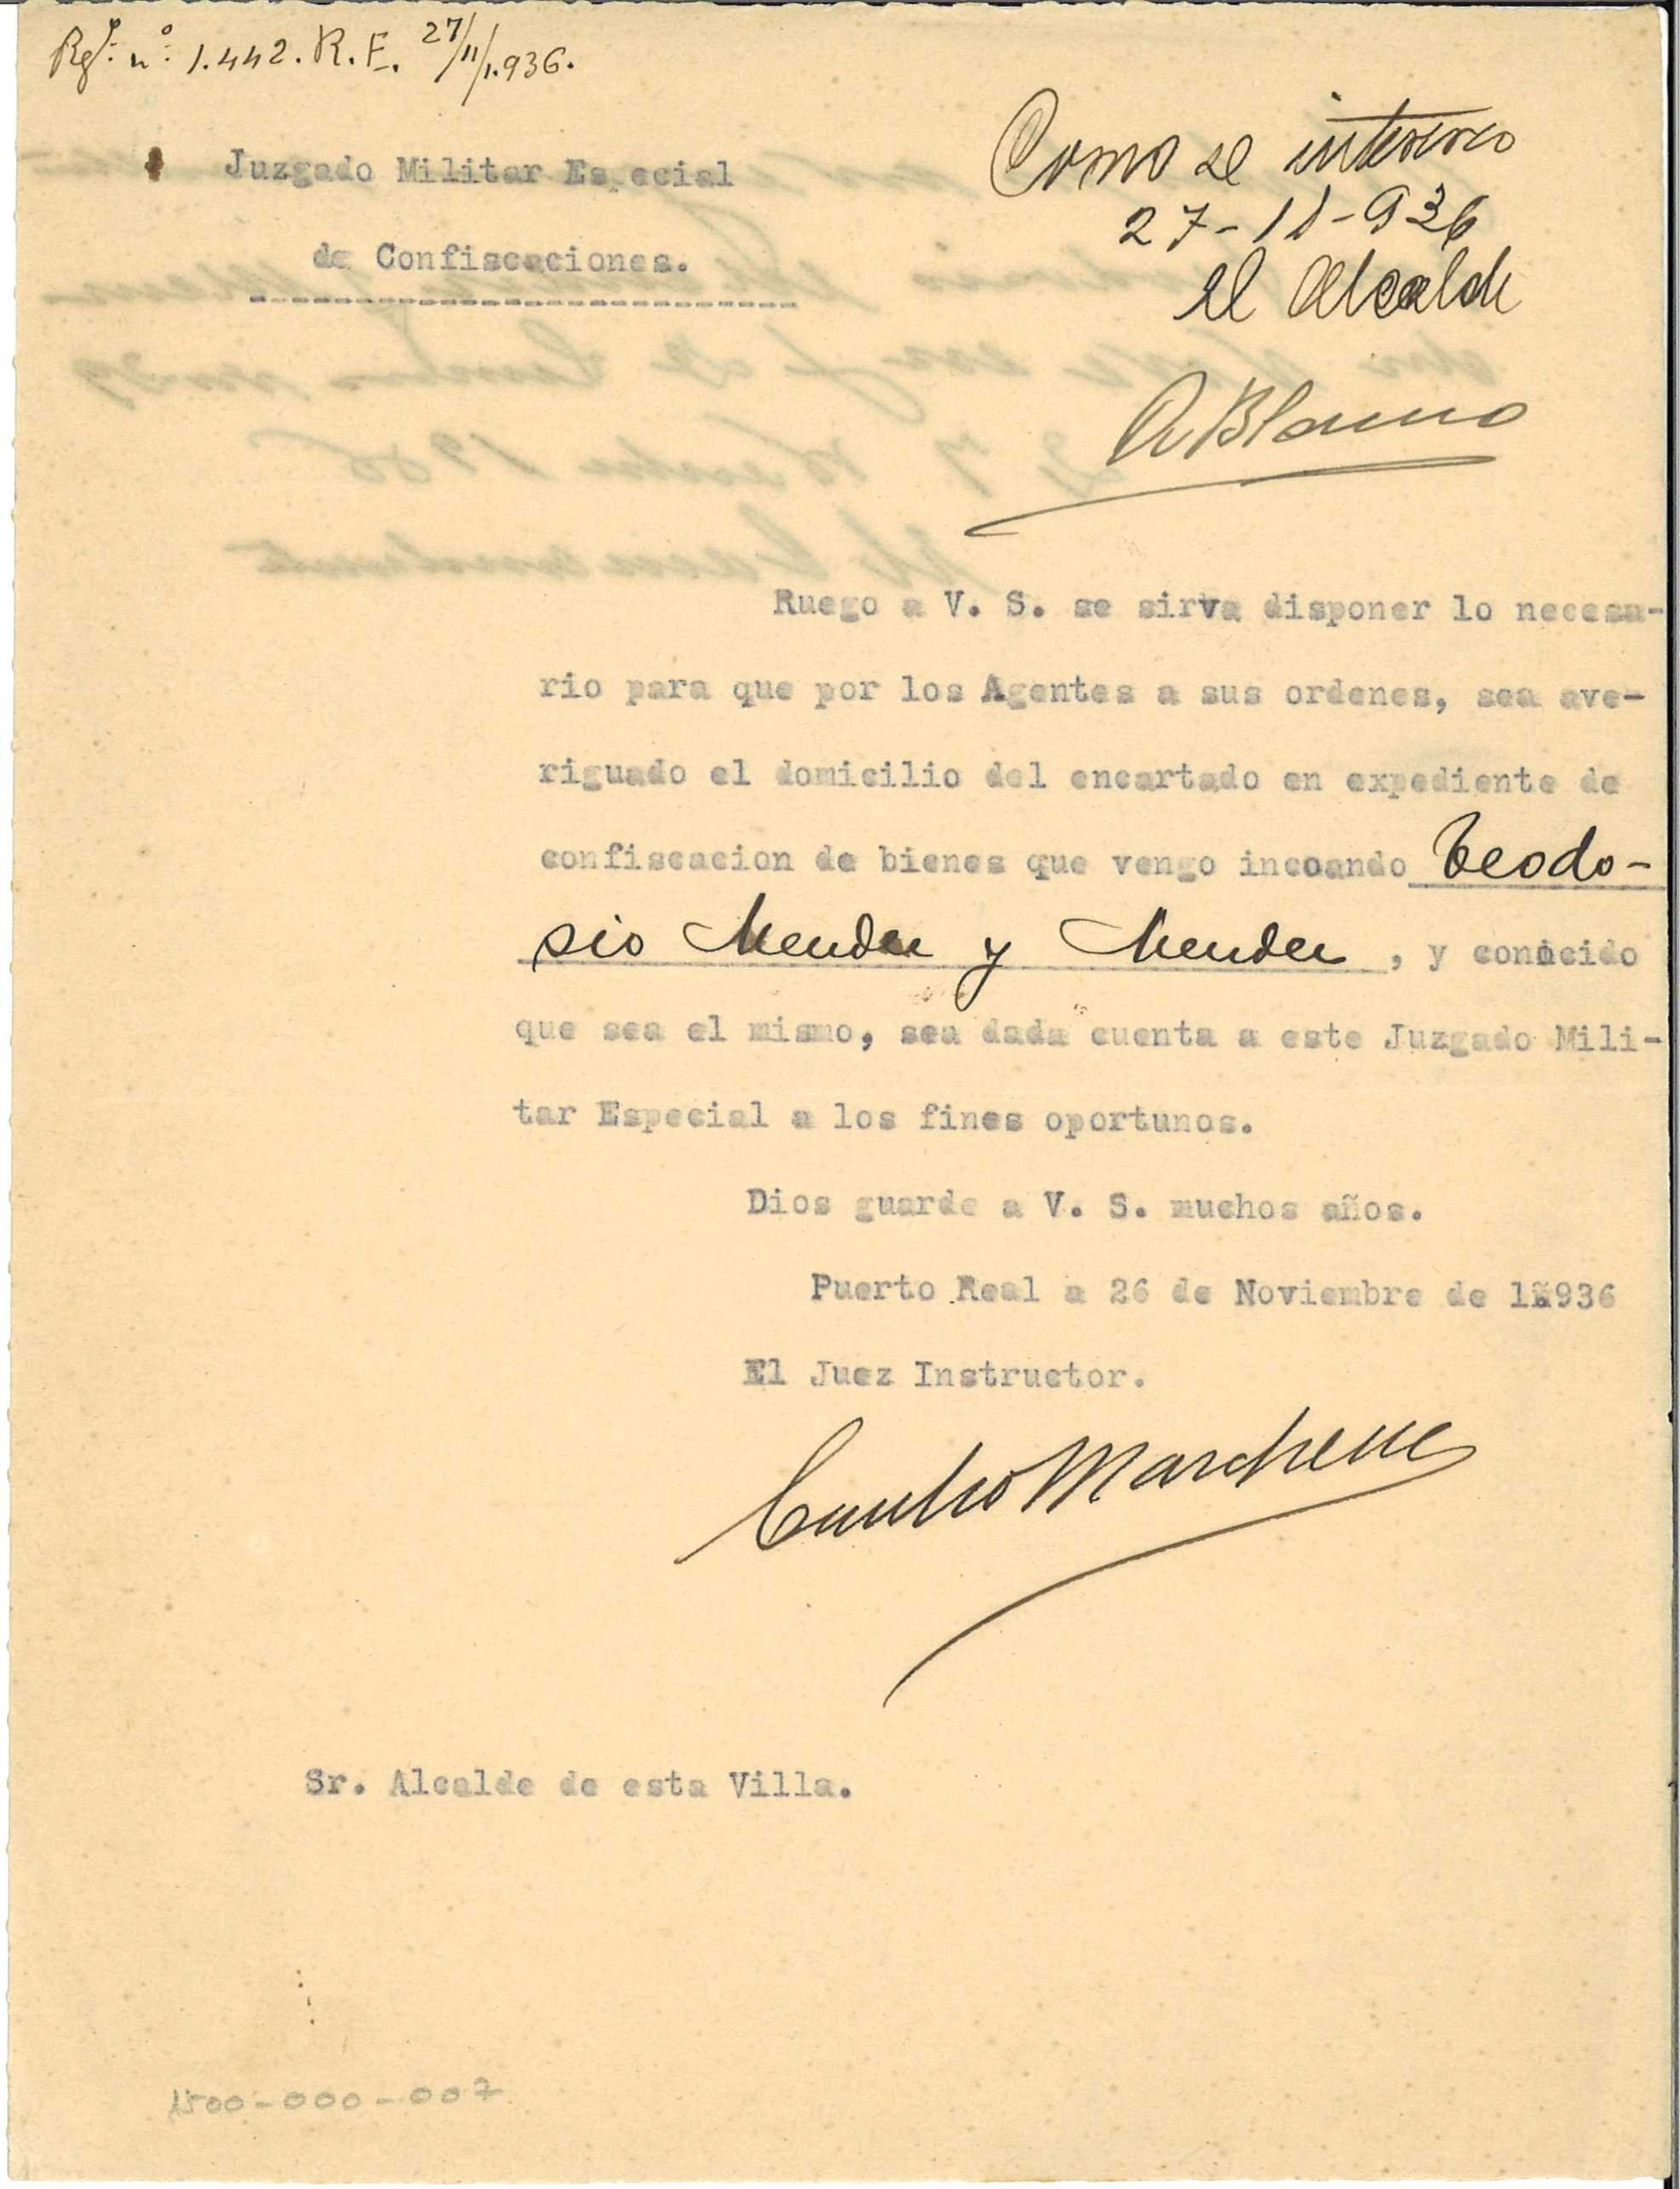 Rgº. nº. 1.442. R.E. 27/11/1.936.
Juzgado Militar Especial
de Confiscaciones.
Como se interesa
27-11-936
El Alcalde
Blanco
Ruego a V. S. se sirva disponer lo necesa-
rio para que por los Agentes a sus ordenes, sea ave-
riguado el domicilio del encartado en expediente de
confiscacion de bienes que vengo incoando Teodo-
sio Mendez y Mendez, y conocido
que sea el mismo, sea dada cuenta a este Juzgado Mili-
tar Especial a los fines oportunos.
Dios guarde a V. S. muchos años.
Puerto Real a 26 de Noviembre de 1.936
El Juez Instructor.
Marchena
Sr. Alcalde de esta Villa.
1500-000-007